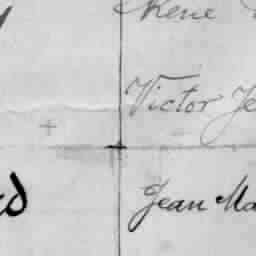 Rene
Victor Je
ed Jean Ma